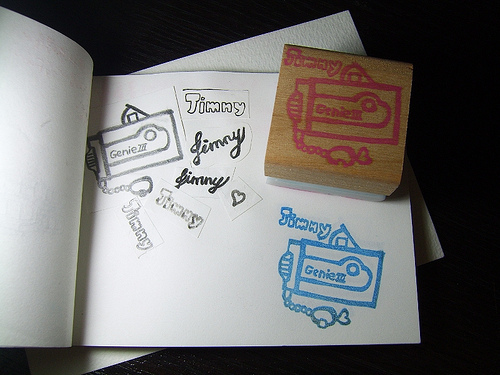 Timmy
Genie III
Jimmy
Jimmy
Timmy
Timmy
Timmy
Genie III
Timmy
Genie III